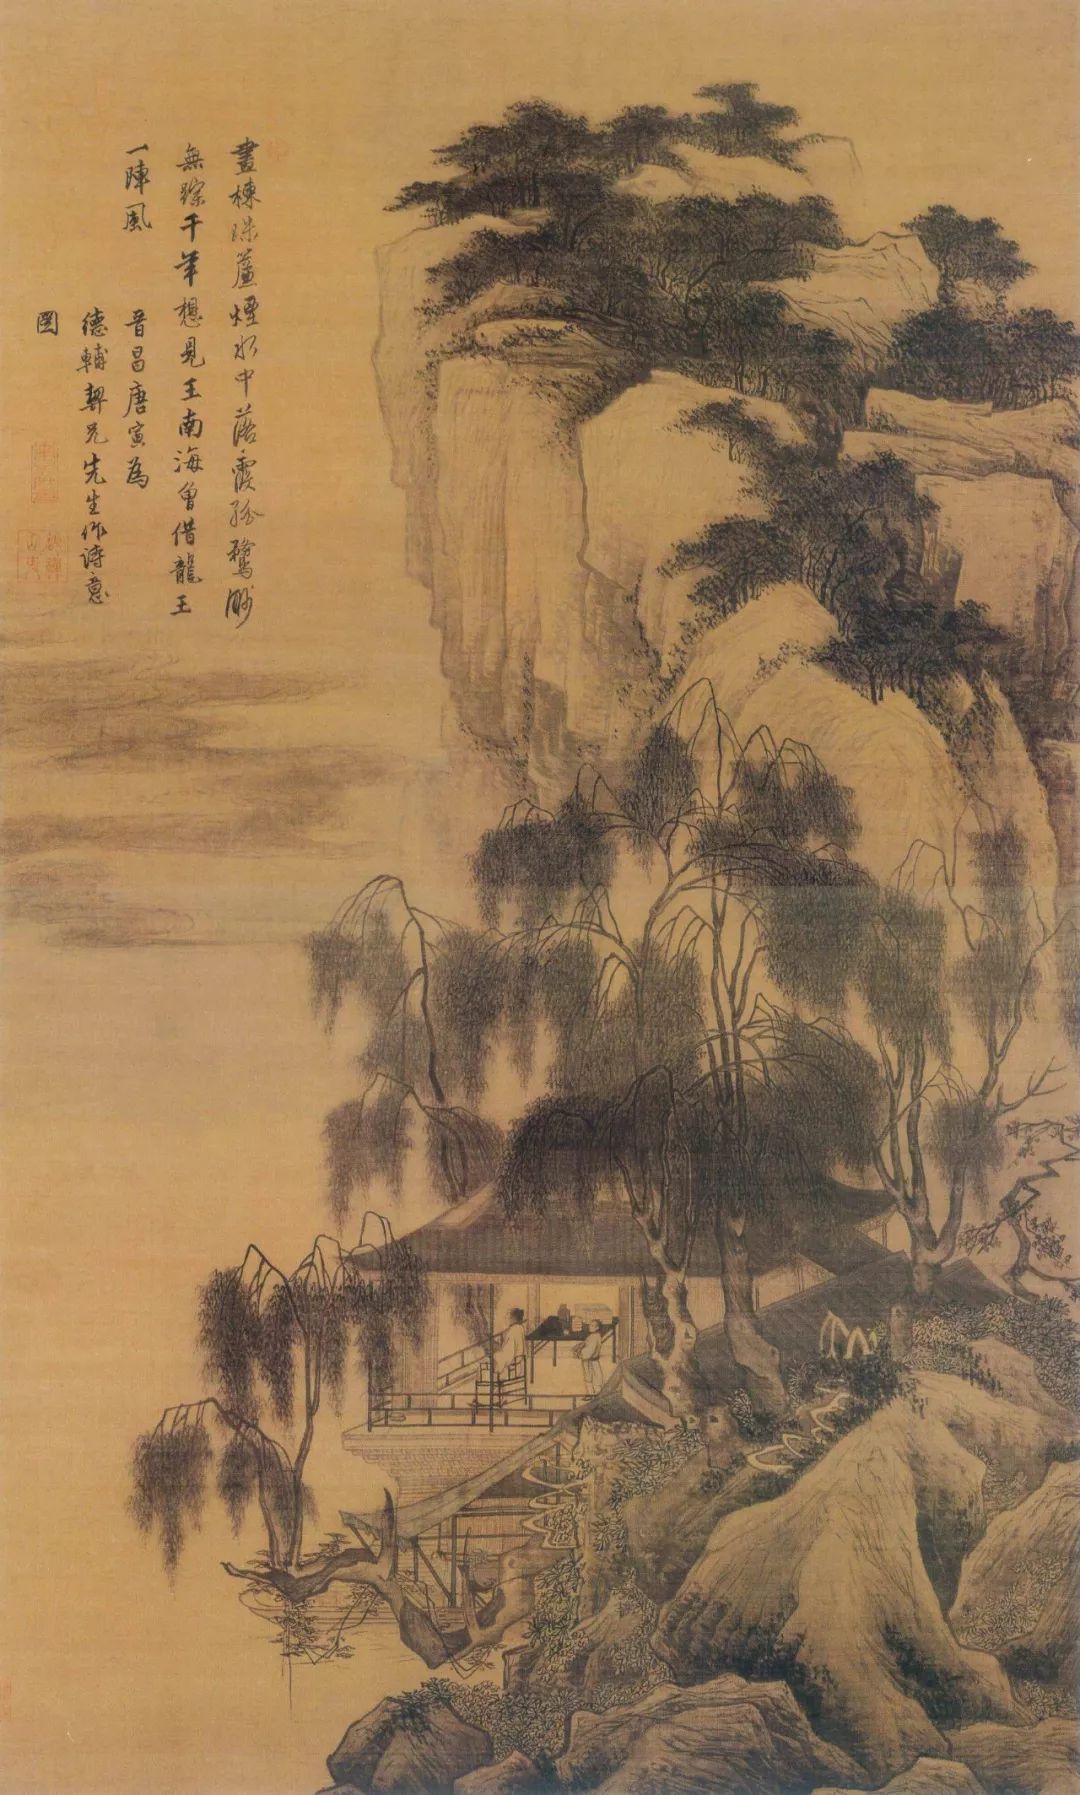 畫棟珠簾煙水中落霞孤鶩渺
無蹤千年想見王南海曾借龍王
一陣風
晉昌唐寅為
德輔契兄先生作詩意
圖